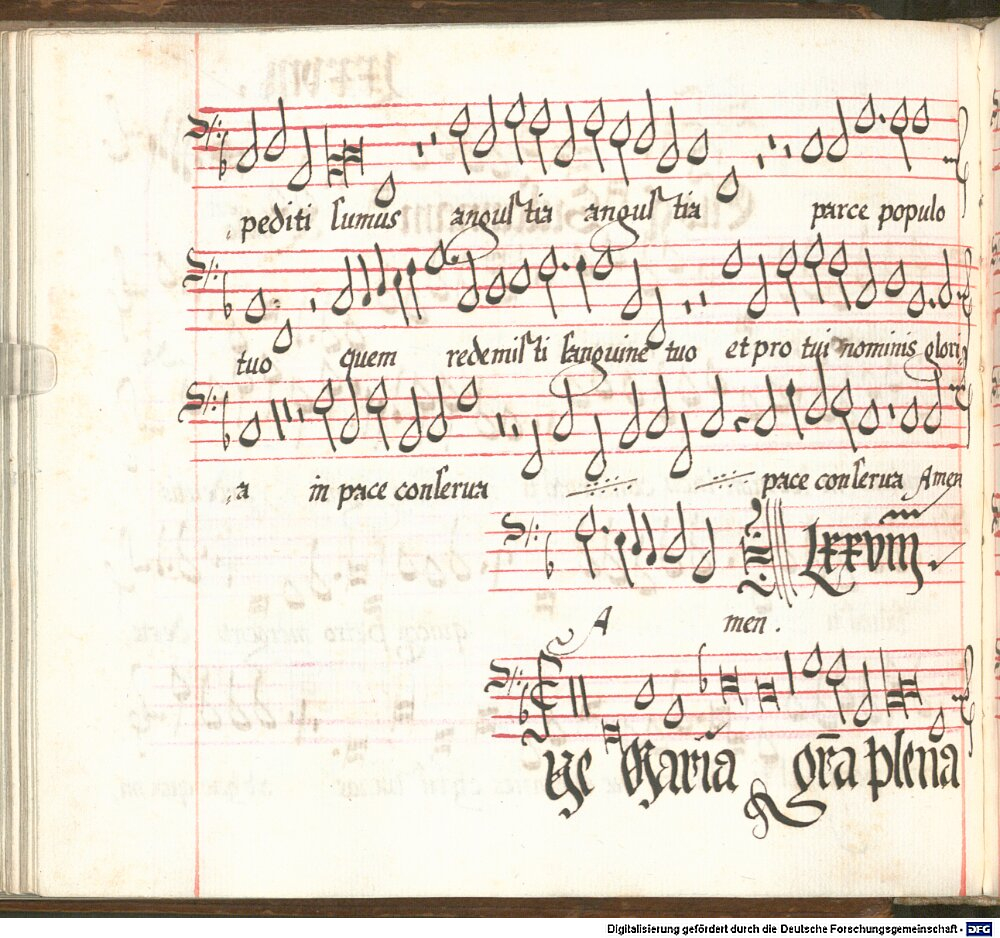 pediti sumus angustia angustia parce populo
tuo quem redemisti sanguine tuo et pro tui nominis glori
a in pace conserua pace conserua Amen
LXXVIII.
A men.
Aue Maria gr̄a plena
Digitalisierung gefördert durch die Deutsche Forschungsgemeinschaft - DFG